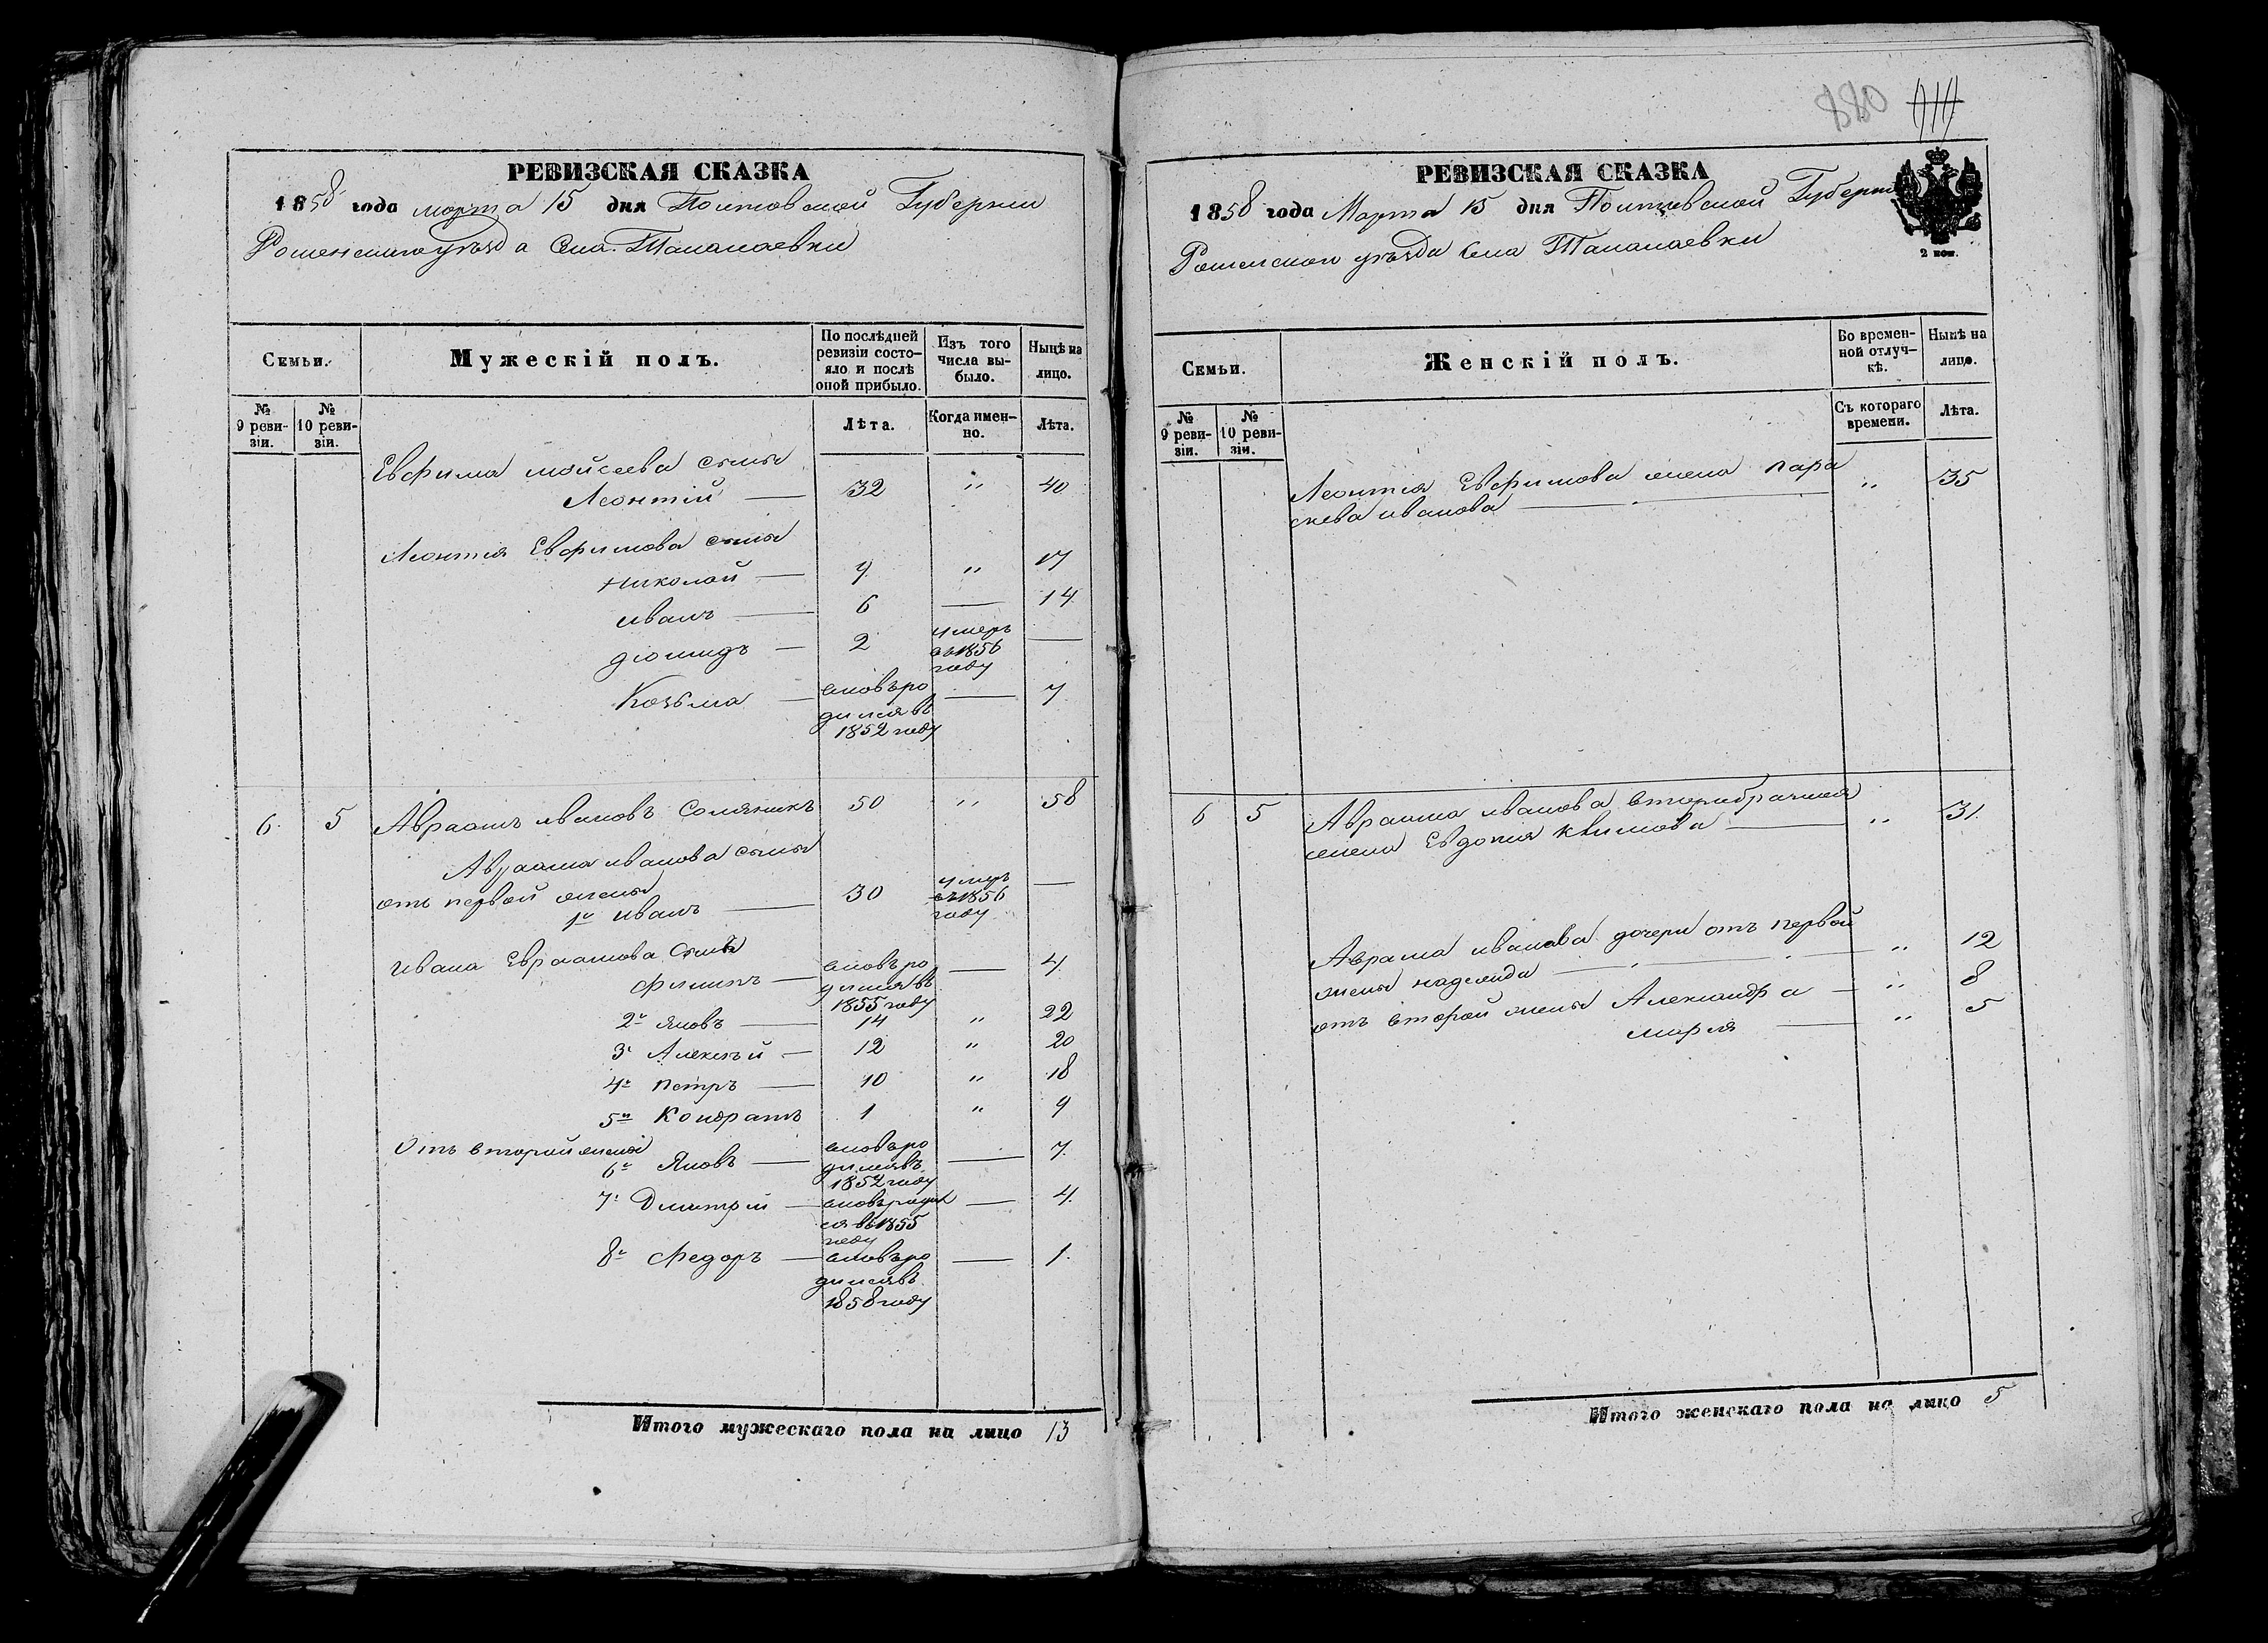 880
РЕВИЗСКАЯ СКАЗКА
1858 года марта 15 дня Полтавской Губернии
Роменского уезда Села Талалаевки
Семьи.
Мужескій полъ.
По послѣдней ревизіи состояло и послѣ оной прибыло.
Изъ того числа выбыло.
Нынѣ на лицо.
№ 9 ревизіи.
№ 10 ревизіи.
Лѣта.
Когда именно.
Лѣта.
Евфима мойсеева сынъ
Леонтій — 32 " 40
Леонтія Евфимова сыны
Николай — 9 " 17
иванъ — 6 — 14
диомидъ — 2 умеръ въ 1856 году —
Козьма — вновь родился въ 1852 году — 7
6. 5 Авраамъ ивановъ Соляникъ 50 " 58
Авраама иванова сыны
отъ первой жены
1й иванъ — 30 умеръ въ 1856 году —
ивана Евраамова сынъ
филипъ — вновь родился въ 1855 году — 4
2й яковъ — 14 " 22
3й Алексѣй — 12 " 20
4й петръ — 10 " 18
5й Кондратъ 1 " 9
Отъ второй жены
6й Яковъ — вновь родился въ 1852 году — 7.
7й Дмитрій — вновь родился въ 1855 году — 4.
8й Федоръ — вновь родился въ 1858 году — 1.
Итого мужескаго пола на лицо 13
РЕВИЗСКАЯ СКАЗКА
1858 года Марта 15 дня Полтавской Губерніи
Роменскаго уезда Села Талалаевки
2 коп.
Семьи.
Женскій полъ.
Во временной отлучкѣ.
Нынѣ на лицо.
№ 9 ревизіи.
№ 10 ревизіи.
Съ котораго времени.
Лѣта.
Леонтія Евфимова жена пара
скева иванова — " 35
6 5 Авраама иванова второбрачная
жена Евдокія Климова — " 31.
Авраама иванова дочери отъ первой
жены надежда — " 12
отъ второй жены Александра — " 8
марія — " 5
Итого женскаго пола на лицо 5